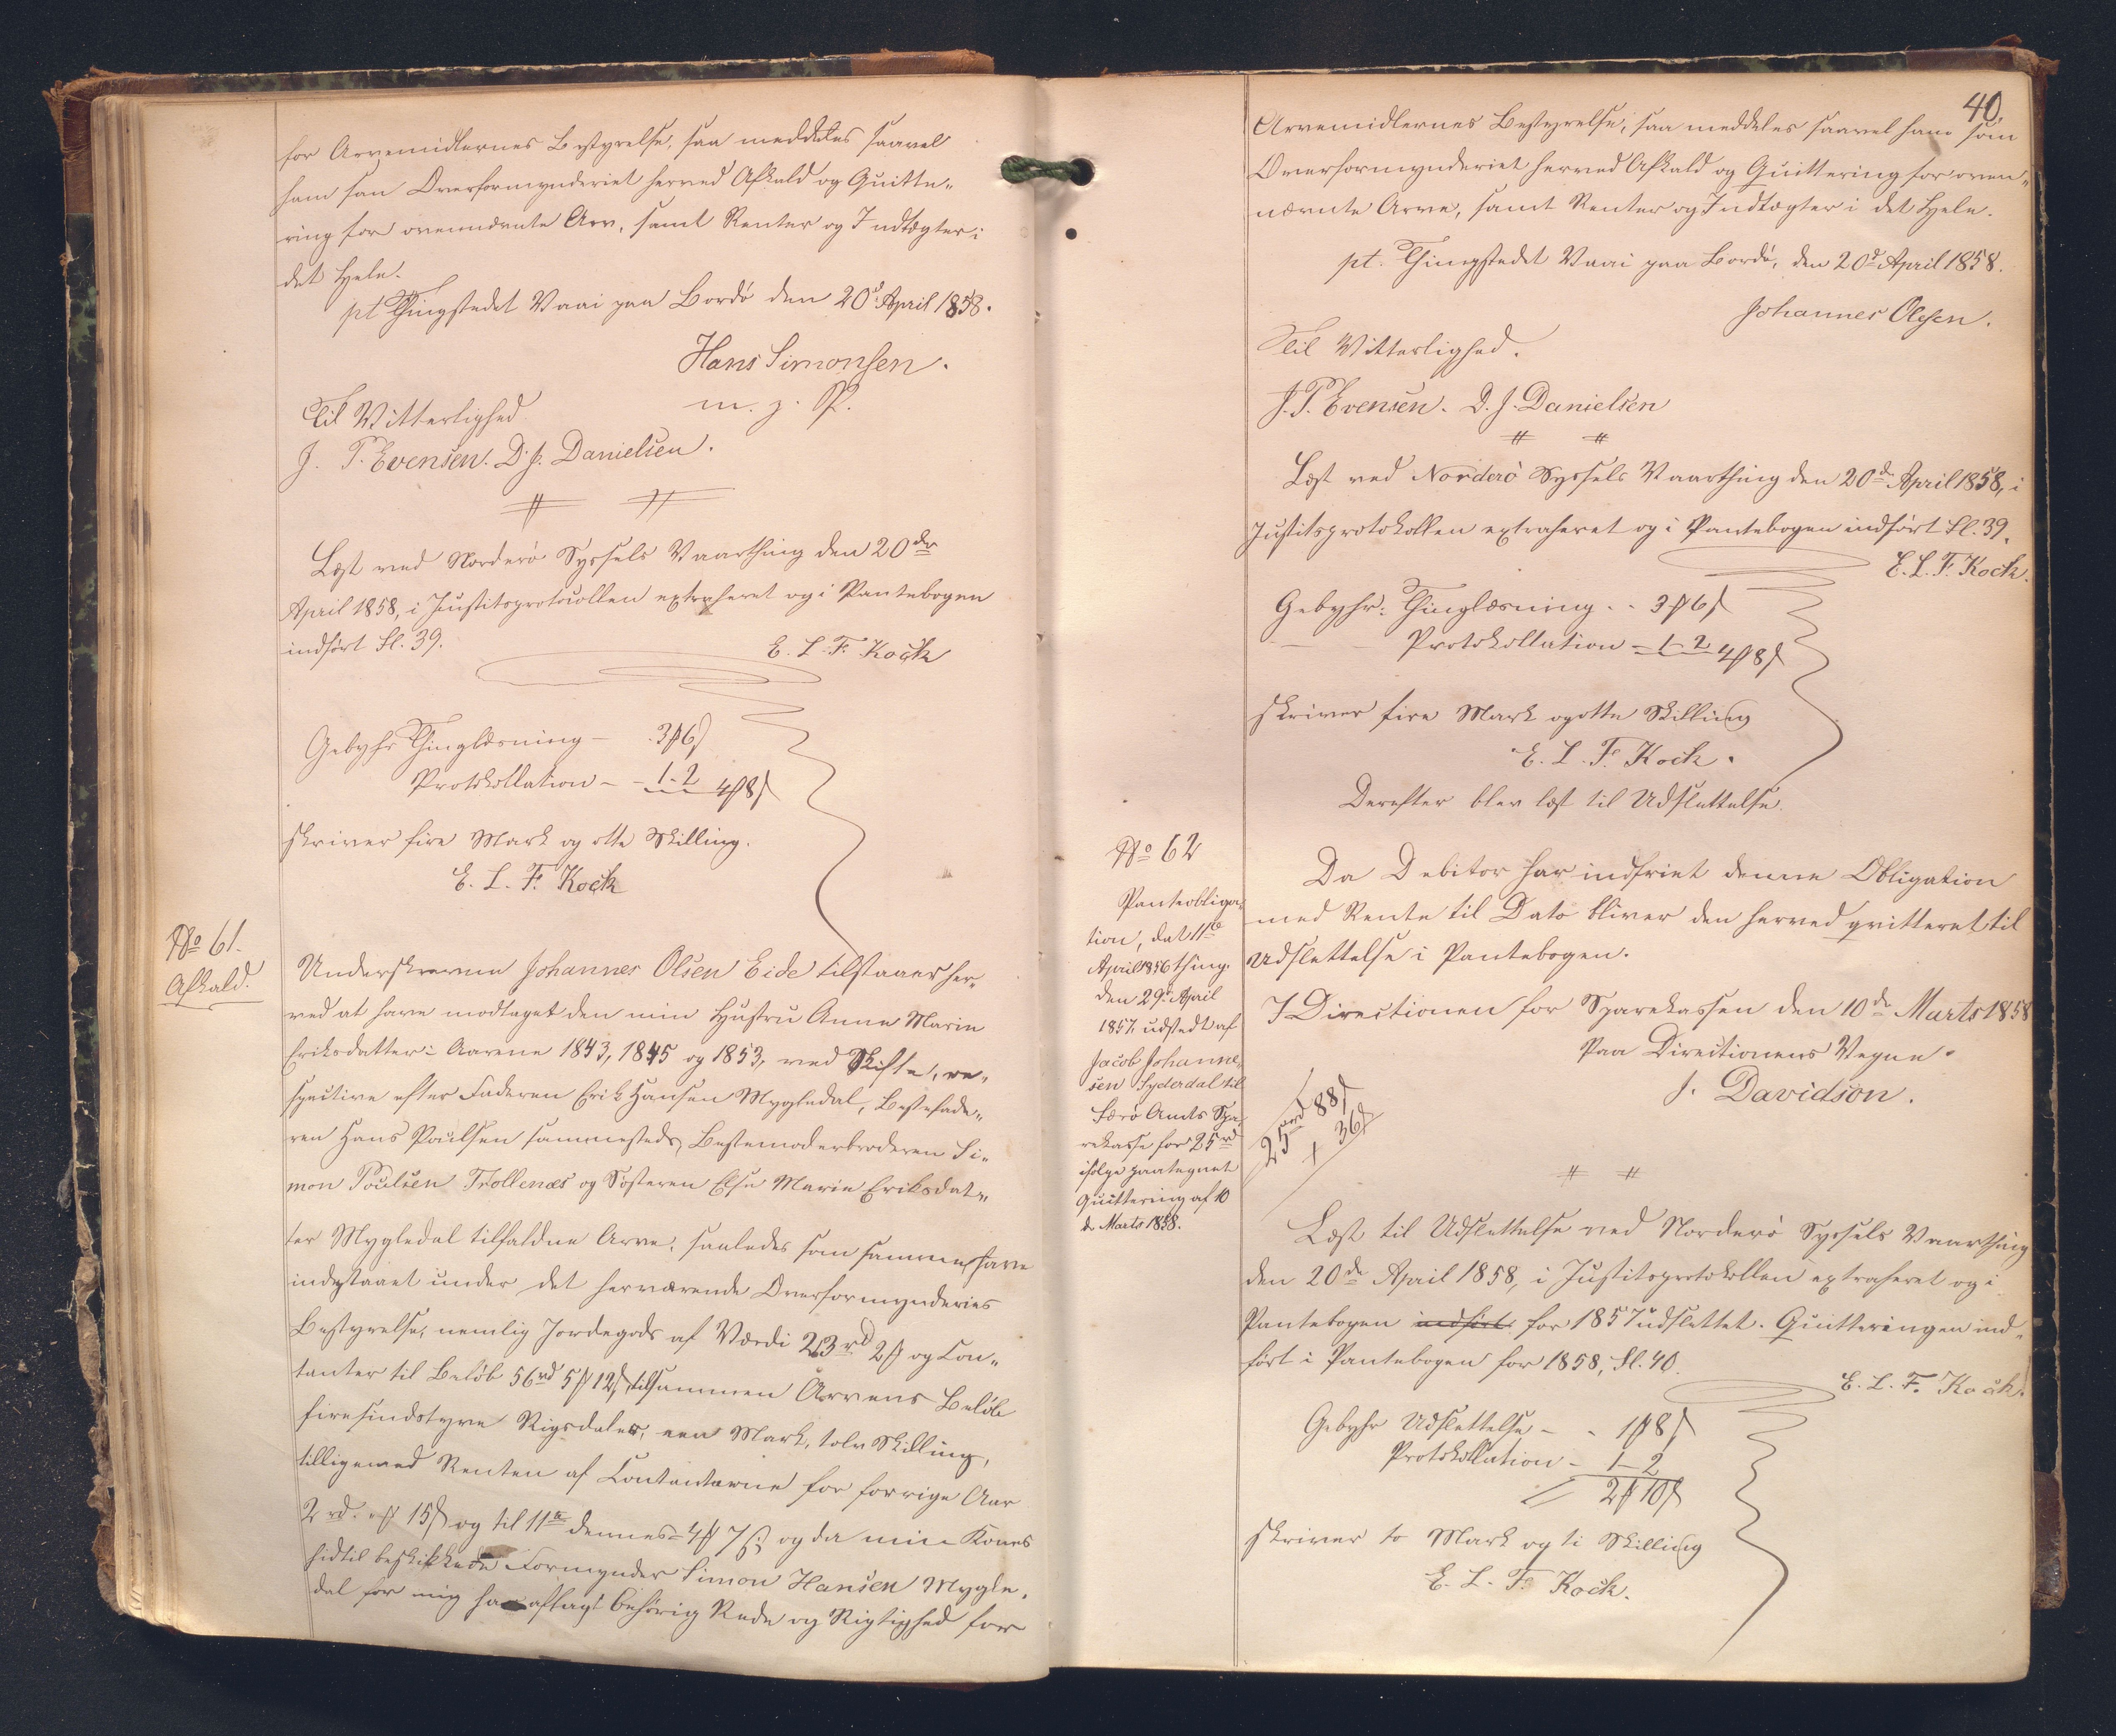 for Arvemidlernes Bestyrelse, saa meddeles saavel
ham som Overformynderiet herved Afkald og Quitte-
ring for ovennævnte Arv, samt Renter og Indtægter i
det Hele.
pt Thingstedet Vaai paa Bordö den 20d April 1858.
Hans Simonsen.
m. f. P.
Til Vitterlighed
J. P. Evensen. D. J. Danielsen.
Læst ved Norderö Syssels Vaarthing den 20de
April 1858, i Justitsprotocollen extraheret og i Pantebogen
indført Fl. 39.
E. L. F. Kock
Gebyhr Thinglæsning - 3 ₻ 6 ẞ
Protokollation - - 1 - 2 4 ₻ 8 ẞ
skriver fire Mark og otte Skilling.
E. L. F. Kock
No 61.
Afkald.
Underskrevne Johannes Olsen Eide tilstaaer her-
ved at have modtaget den min Hustru Anne Marie
Eriksdatter i Aarene 1843, 1845 og 1853, ved Skifte, re-
spective efter Faderen Erik Hansen Mygledal, Bestefade-
ren Hans Poulsen sammesteds, Bestemoderbroderen Si-
mon Poulsen Trollenæs og Søsteren Else Marie Eriksdat-
ter Mygledal tilfaldne Arve, saaledes som samme have
indestaaet under det herværende Overformynderies
Bestyrelse, nemlig Jordegods af Værdi 23 rd 2 ₻ og Con-
tanter til Beløb 56 rd 5 ₻ 12 ẞ, tilsammen Arvens Beløb
firesindstyve Rigsdaler, een Mark, tolv Skilling,
tilligemed Renten af Contanterne for forrige Aar
2 rd. " ₻ 15 ẞ og til 11te dennes 4 ₻ 7 ẞ; og da min Kones
hidtil beskikkede Formynder Simon Hansen Mygle-
dal for mig har aflagt behørig Rede og Rigtighed for
40
Arvemidlernes Bestyrelse, saa meddeles saavel ham som
Overformynderiet herved Afkald og Quittering for oven-
nævnte Arve, samt Renter og Indtægter i det Hele.
pt. Thingstedet Vaai paa Bordö, den 20d April 1858.
Johannes Olsen.
Til Vitterlighed.
J. P. Evensen. D. J. Danielsen
Læst ved Norderö Syssels Vaarthing den 20de April 1858, i
Justitsprotokollen extraheret og i Pantebogen indført Fl. 39.
E. L. F. Kock.
Gebyhr: Thinglæsning - - 3 ₻ 6 ẞ
Protokollation - 1 - 2 4 ₻ 8 ẞ
skriver fire Mark og otte Skilling
E. L. F. Kock.
Derefter blev læst til Udslettelse.
No 62
Panteobliga-
tion, dat 11te
April 1856 thing.
den 29d April
1857. udstedt af
Jacob Johanne-
sen Syderdal til
Færö Amts Spa-
rekasse for 25 rd
ifølge paategnet
Quittering af 10
de Marts 1858.
Da Debitor har indfriet denne Obligation
med Rente til Dato bliver den herved qvitteret til
Udslettelse i Pantebogen.
I Directionen for Sparekassen den 10de Marts 1858
Paa Directionens Vegne.
J. Davidson.
25 rd 88 ẞ
+ 36 ẞ
Læst til Udslettelse ved Norderö Syssels Vaarthing
den 20de April 1858, i Justitsprotokollen extraheret og i
Pantebogen indført for 1857 udslettet. Quitteringen ind-
ført i Pantebogen for 1858, Fl. 40.
E. L. F. Kock.
Gebyhr Udslettelse - - 1 ₻ 8 ẞ
Protokollation - 1 - 2
2 ₻ 10 ẞ
skriver to Mark og ti Skilling
E. L. F. Kock.